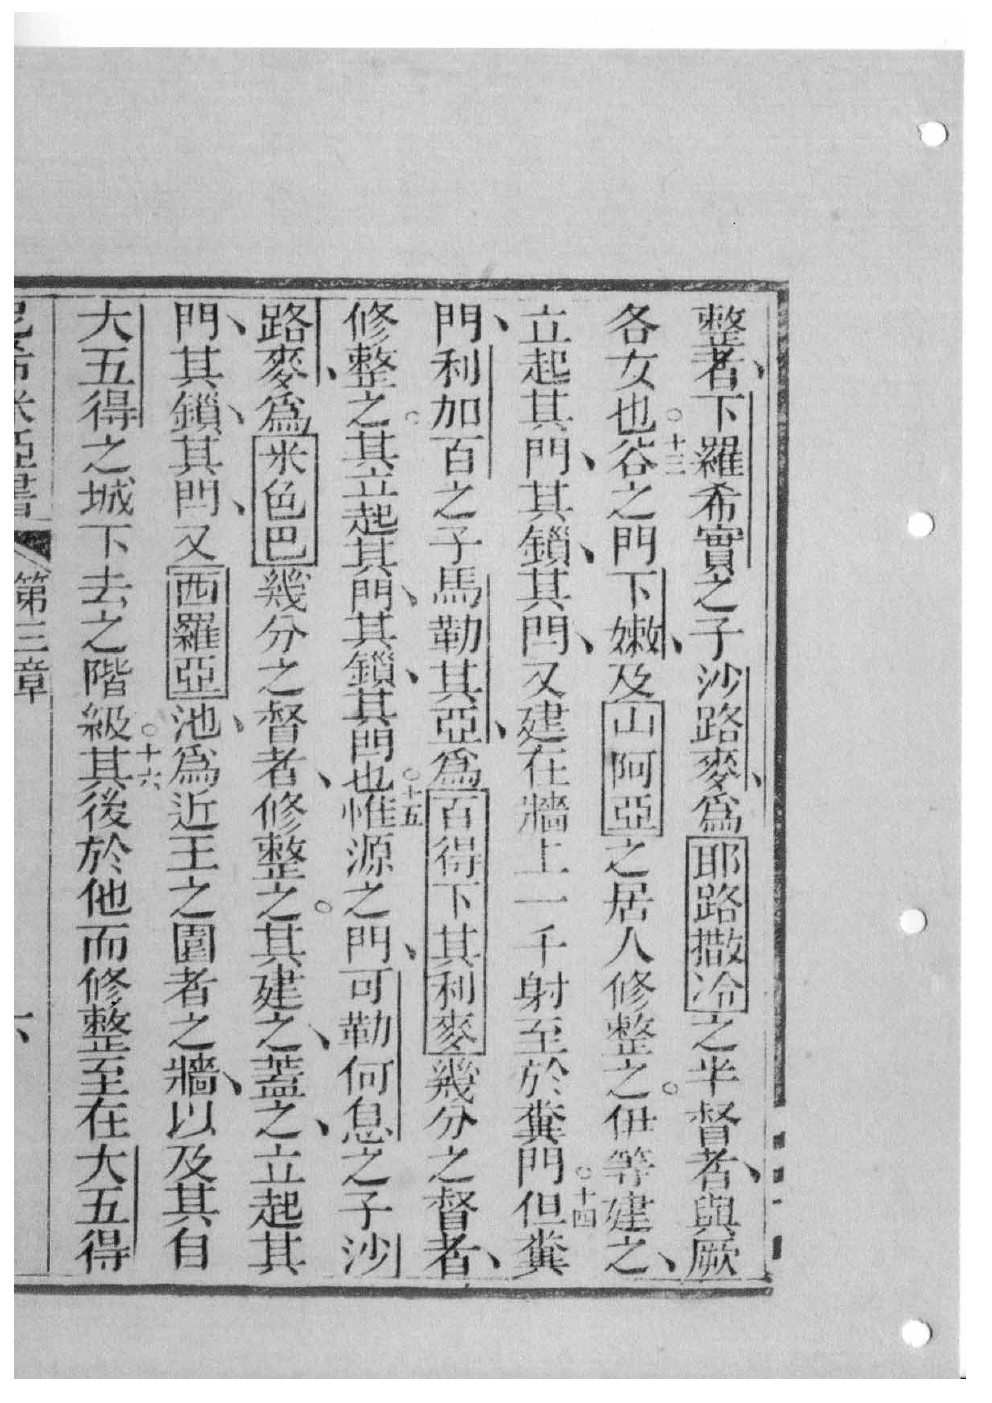 整者、下羅希實之子沙路麥、爲耶路撒冷之半督者、與厥
各女也。十三谷之門下嫩、及山阿亞之居人修整之。伊等建之、
立起其門、其鎖、其閂、又建在牆上一千射至於糞門。十四但糞
門、利加百之子馬勒其亞、爲百得下其利麥幾分之督者、
修整之。其立起其門、其鎖、其閂也。十五惟源之門、可勒何息之子沙
路麥、爲米色巴幾分之督者、修整之。其建之、蓋之、立起其
門、其鎖、其閂、又西羅亞池、爲近王之園者之牆、以及其自
大五得之城下去之階級。十六其後於他而修整至在大五得
尼希米亞書 第三章 六